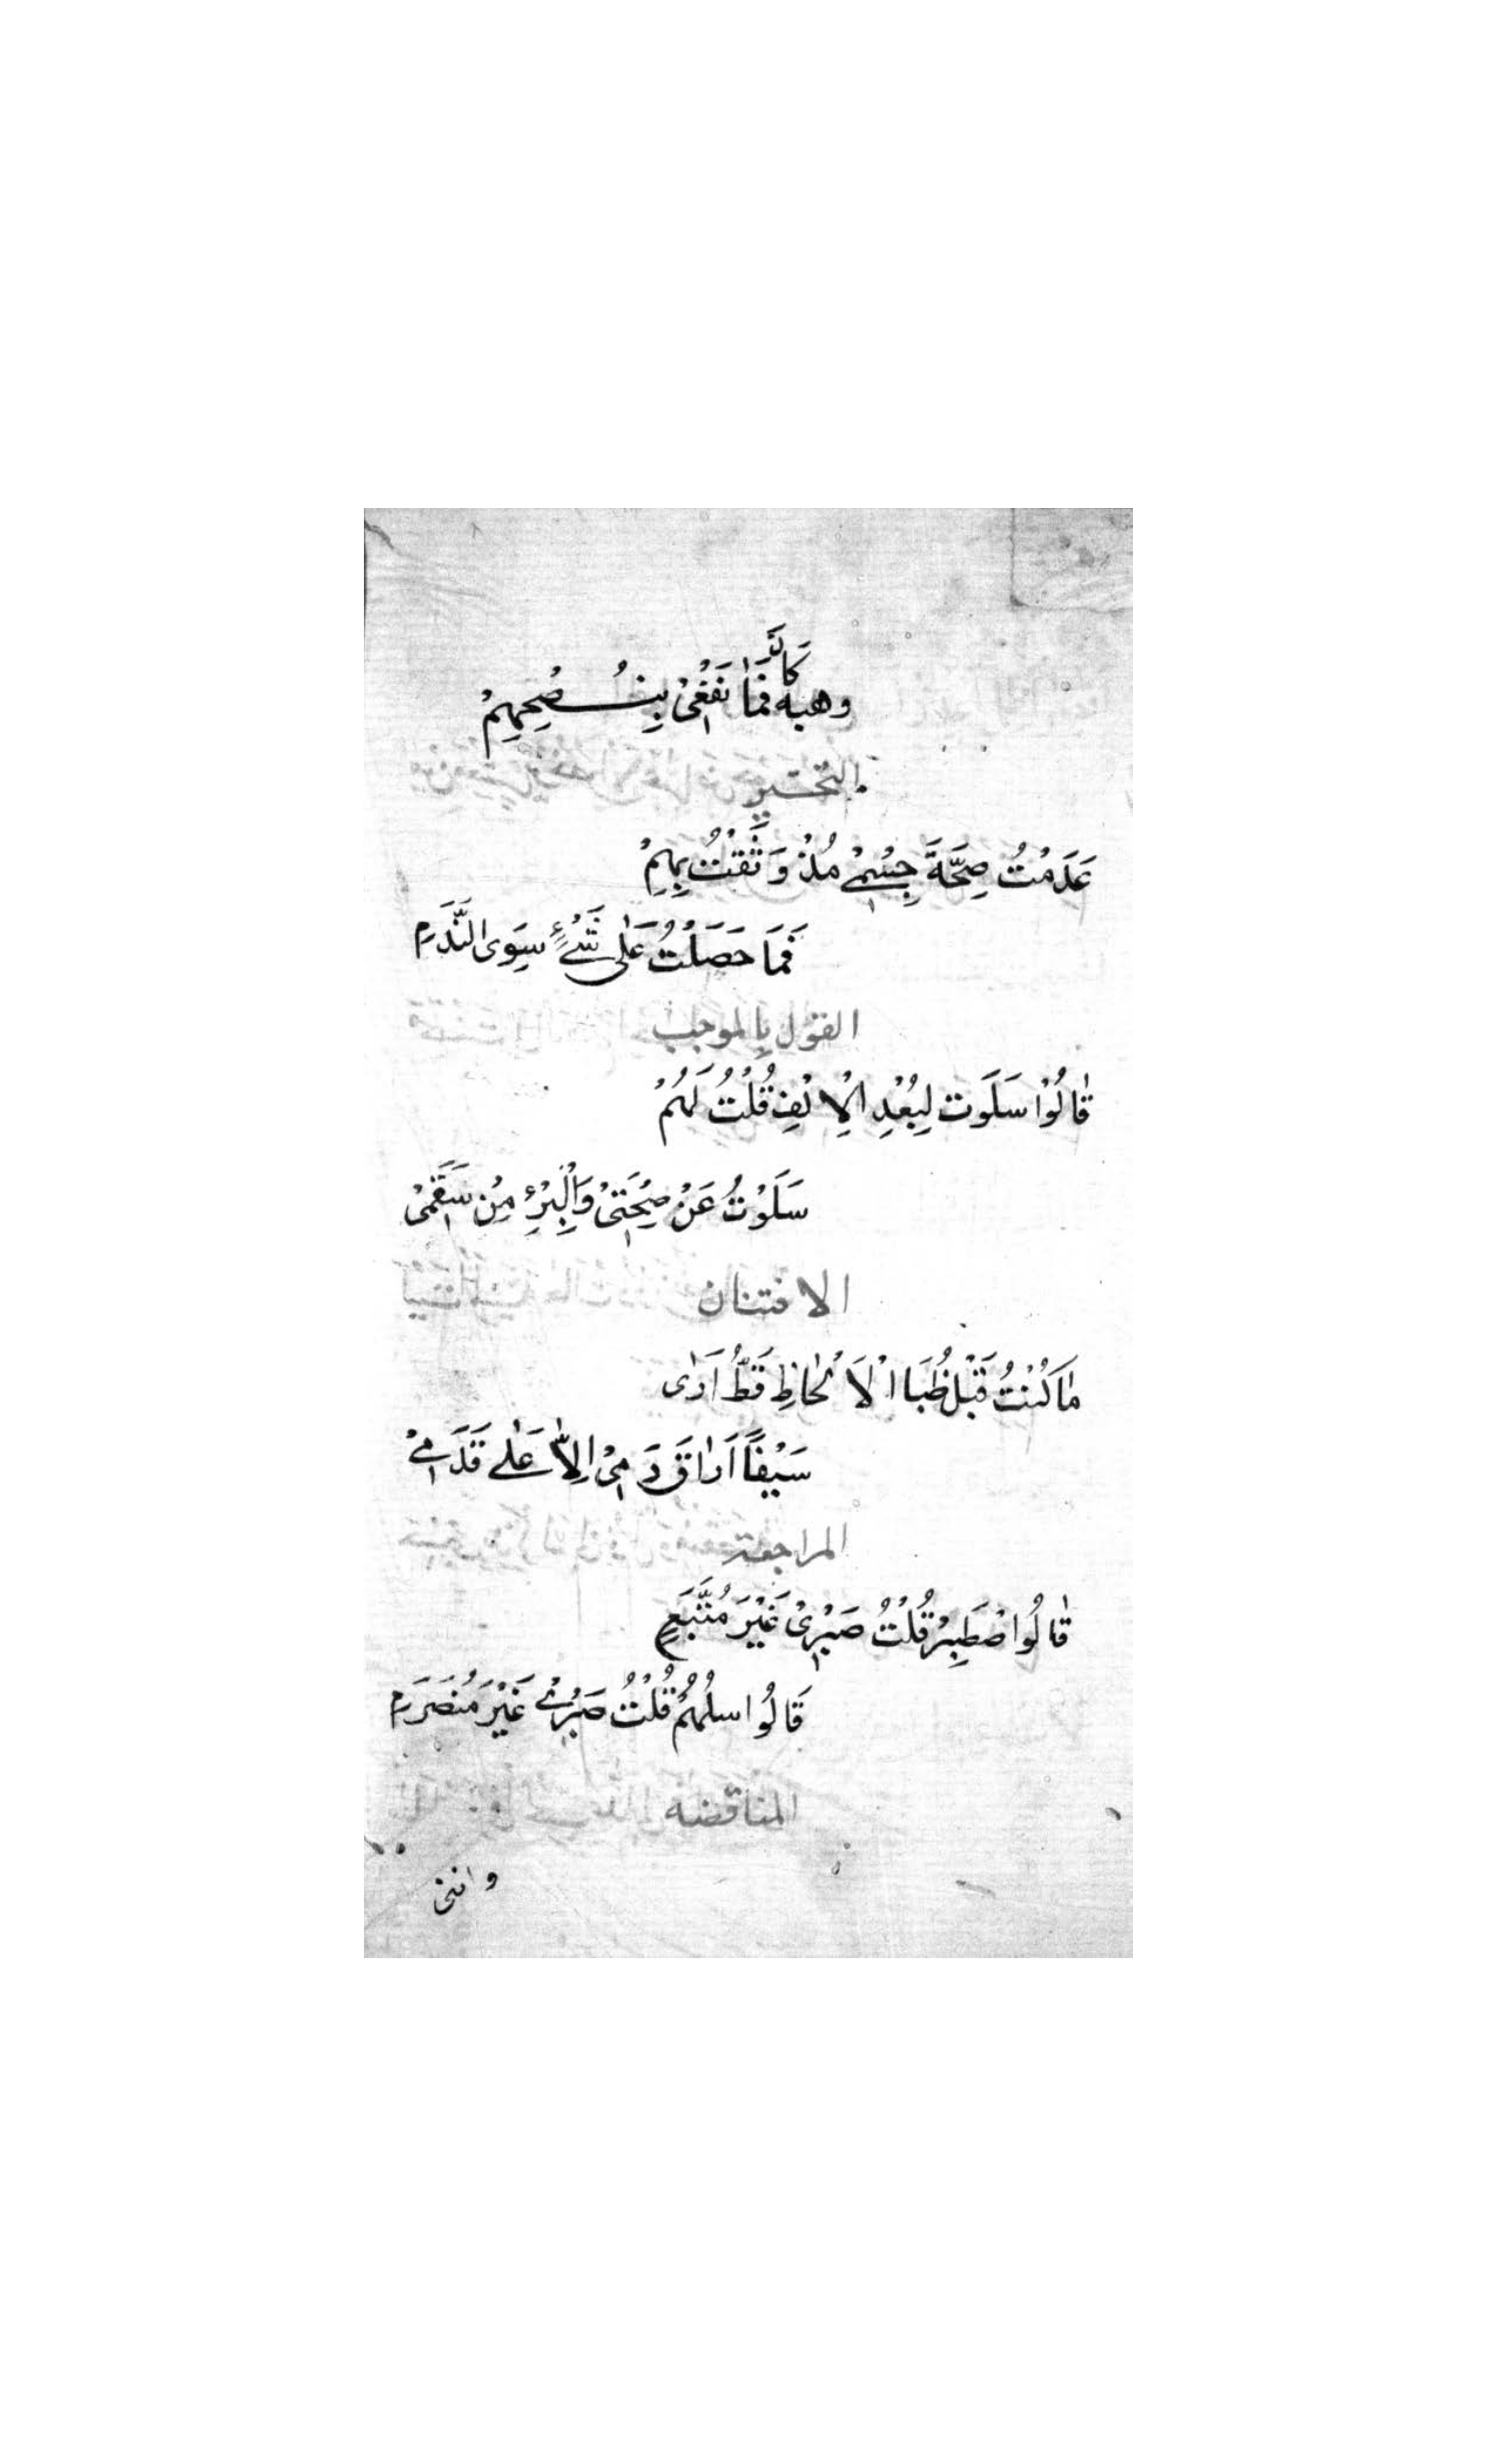 وهبه كان فَمَا نَفَعْیْ بِنُصْحِهِمْ
التخيير
عَدَمْتُ صِحَّةَ جِسْمِےْ مُذْ وَثَقْتُ بِهِمْ
فَمَا حَصَلْتُ عَلٰی شَےْءٍ سِوَی النَّدَمِ
القول بالموجب
قٰالُوْا سَلَوْت لِبُعْدِ الْاِلْفِ قُلْتُ لَهُمْ
سَلَوْتُ عَنْ صِحَّتِیْ وَالْبِرْءِ مِنْ سَقَمِیْ
الافتنان
مٰا كُنْتُ قَبْلَ ظُبَا الْاَلْحٰاظِ قَطُّ اَرٰی
سَيْفًا اَرٰاقَ دَمِیْ اِلاّٰ عَلٰے قَدَمِےْ
المراجعة
قٰالُوا صْطَبِرْ قُلْتُ صَبْرِیْ غَيْرَ مُتَّبَعٍ
قَالُوا سلُهُمْ قُلْتُ صَبْرِےْ غَيْرَ مُنْصَرَمِ
المناقضه
واننی